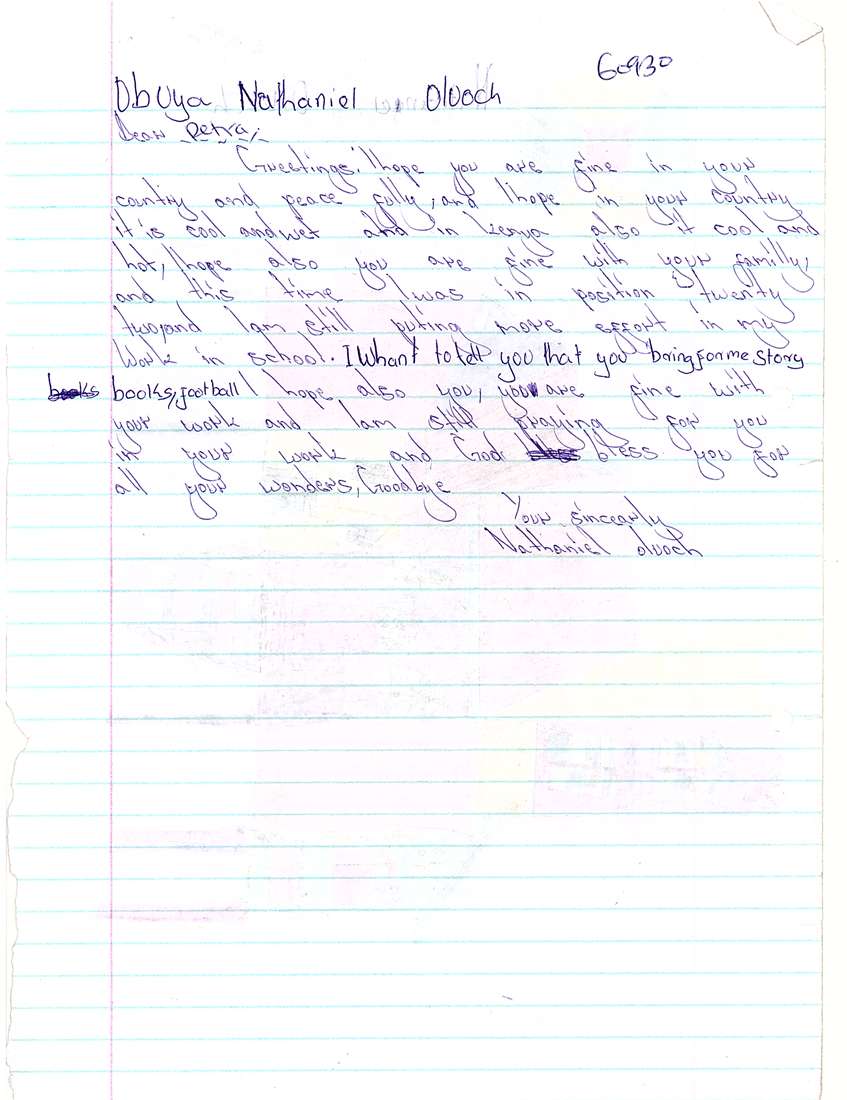 60930
Obuya Nathaniel Oluoch
Dear Petra,
Greetings. I hope you are fine in your
country and peace fully, and I hope in your country
it is cool and wet and in kenya also it cool and
hot, I hope also you are fine with your familly,
and this time I was in position twenty
two, and I am still puting more effort in my
Work in school. I Whant to tell you that you bring for me story
books books, football I hope also you, you are fine with
your work and I am still praying for you
in your work and God bless you for
all your wonders, Goodbye
Your sincearly
Nathaniel oluoch